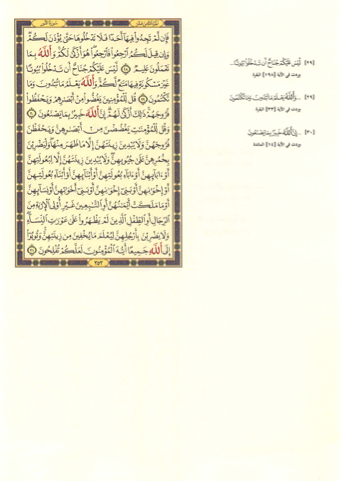 فَإِن لَّمْ تَجِدُوا۟ فِيهَآ أَحَدًا فَلَا تَدْخُلُوهَا حَتَّىٰ يُؤْذَنَ لَكُمْ
وَإِن قِيلَ لَكُمُ ٱرْجِعُوا۟ فَٱرْجِعُوا۟ هُوَ أَزْكَىٰ لَكُمْ وَٱللَّهُ بِمَا
تَعْمَلُونَ عَلِيمٌ لَّيْسَ عَلَيْكُمْ جُنَاحٌ أَن تَدْخُلُوا۟ بُيُوتًا
غَيْرَ مَسْكُونَةٍ فِيهَا مَتَٰعٌ لَّكُمْ وَٱللَّهُ يَعْلَمُ مَا تُبْدُونَ وَمَا
تَكْتُمُونَ قُل لِّلْمُؤْمِنِينَ يَغُضُّوا۟ مِنْ أَبْصَٰرِهِمْ وَيَحْفَظُوا۟
فُرُوجَهُمْ ذَٰلِكَ أَزْكَىٰ لَهُمْ إِنَّ ٱللَّهَ خَبِيرٌۢ بِمَا يَصْنَعُونَ
وَقُل لِّلْمُؤْمِنَٰتِ يَغْضُضْنَ مِنْ أَبْصَٰرِهِنَّ وَيَحْفَظْنَ
فُرُوجَهُنَّ وَلَا يُبْدِينَ زِينَتَهُنَّ إِلَّا مَا ظَهَرَ مِنْهَا وَلْيَضْرِبْنَ
بِخُمُرِهِنَّ عَلَىٰ جُيُوبِهِنَّ وَلَا يُبْدِينَ زِينَتَهُنَّ إِلَّا لِبُعُولَتِهِنَّ
أَوْ ءَابَآئِهِنَّ أَوْ ءَابَآءِ بُعُولَتِهِنَّ أَوْ أَبْنَآئِهِنَّ أَوْ أَبْنَآءِ بُعُولَتِهِنَّ
أَوْ إِخْوَٰنِهِنَّ أَوْ بَنِىٓ إِخْوَٰنِهِنَّ أَوْ بَنِىٓ أَخَوَٰتِهِنَّ أَوْ نِسَآئِهِنَّ
أَوْ مَا مَلَكَتْ أَيْمَٰنُهُنَّ أَوِ ٱلتَّٰبِعِينَ غَيْرِ أُو۟لِى ٱلْإِرْبَةِ مِنَ
ٱلرِّجَالِ أَوِ ٱلطِّفْلِ ٱلَّذِينَ لَمْ يَظْهَرُوا۟ عَلَىٰ عَوْرَٰتِ ٱلنِّسَآءِ
وَلَا يَضْرِبْنَ بِأَرْجُلِهِنَّ لِيُعْلَمَ مَا يُخْفِينَ مِن زِينَتِهِنَّ وَتُوبُوٓا۟
إِلَى ٱللَّهِ جَمِيعًا أَيُّهَ ٱلْمُؤْمِنُونَ لَعَلَّكُمْ تُفْلِحُونَ
٣٥٣
[٢٩] لَّيْسَ عَلَيْكُمْ جُنَاحٌ أَن تَدْخُلُوا۟ بُيُوتًا...
وردت في الآية [١٩٨] البقرة
[٢٩] ...وَٱللَّهُ يَعْلَمُ مَا تُبْدُونَ وَمَا تَكْتُمُونَ
وردت في الآية [٣٣] البقرة
[٣٠] ...إِنَّ ٱللَّهَ خَبِيرٌۢ بِمَا يَصْنَعُونَ
وردت في الآية المائدة